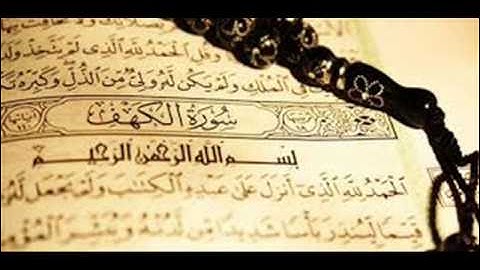 وَقُلِ الْحَمْدُ لِلَّهِ الَّذِي لَمْ يَتَّخِذْ وَلَدًا
فِي الْمُلْكِ وَلَمْ يَكُن لَّهُ وَلِيٌّ مِّنَ الذُّلِّ وَكَبِّرْهُ
سُورَةُ الْكَهْفِ
بِسْمِ اللَّهِ الرَّحْمَٰنِ الرَّحِيمِ
الْحَمْدُ لِلَّهِ الَّذِي أَنزَلَ عَلَىٰ عَبْدِهِ الْكِتَابَ وَلَمْ يَجْعَل لَّهُ
قَيِّمًا لِّيُنذِرَ بَأْسًا شَدِيدًا مِّن لَّدُنْهُ وَيُبَشِّرَ